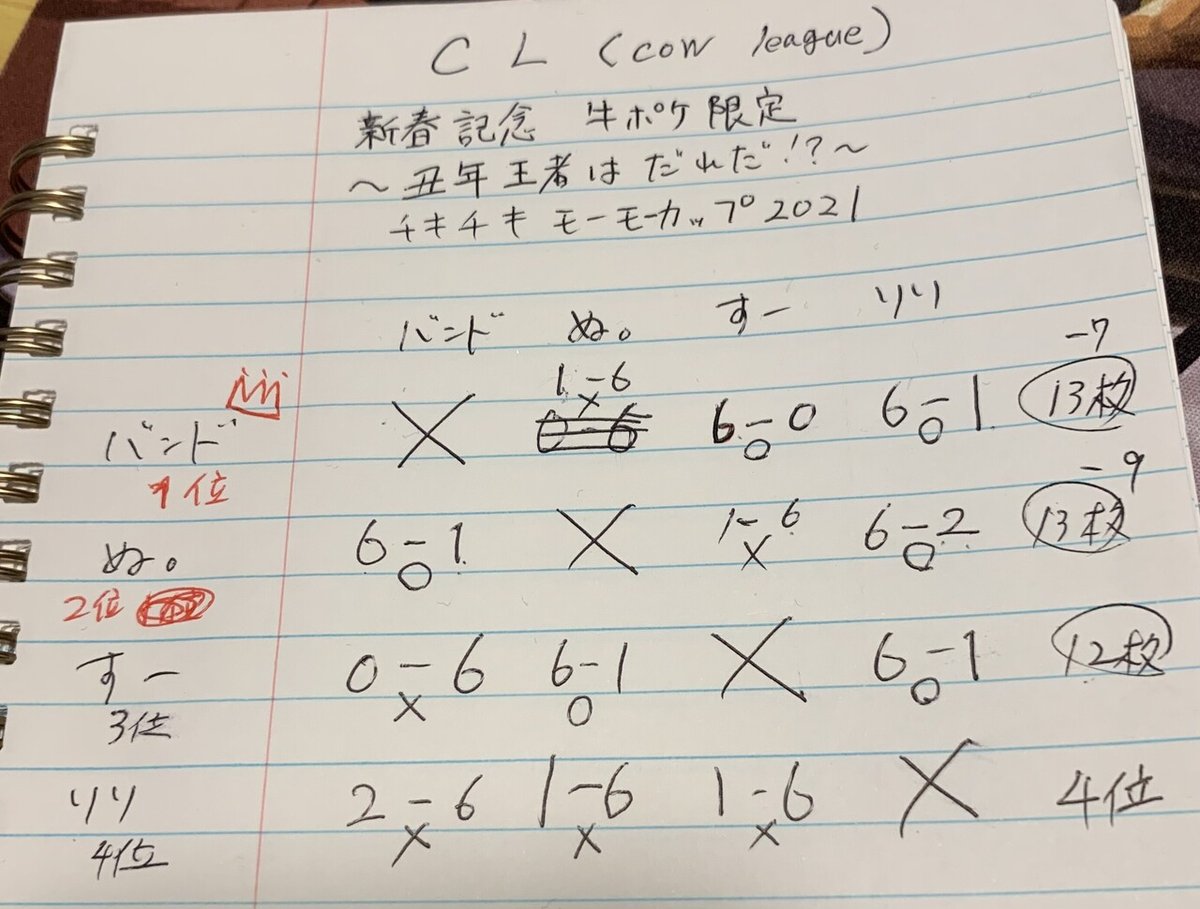 CL (cow league)
新春記念 牛ポケ限定
～丑年王者はだれだ!?～
チキチキモーモーカップ2021
バンド ぬ。 すー リリ
バンド 1-6 × 6-0 ○ 6-1 ○ -7 13枚
1位
ぬ。 6-1 ○ 1-6 × 6-2 ○ -9 13枚
2位
すー 0-6 × 6-1 ○ 6-1 ○ 12枚
3位
リリ 2-6 × 1-6 × 1-6 × 4位
4位